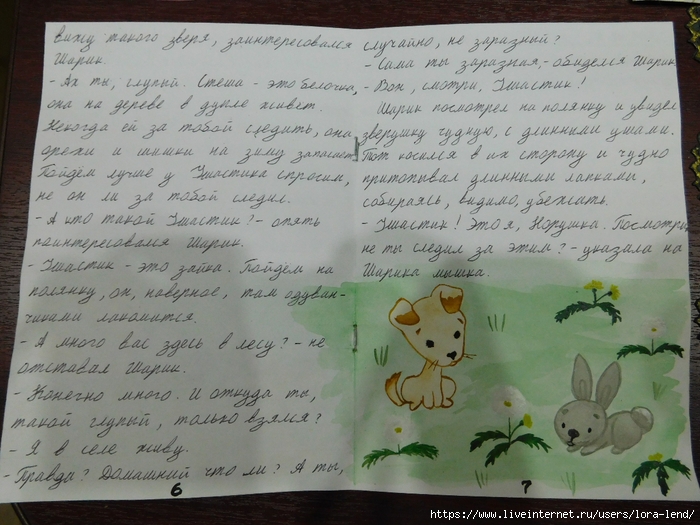 вижу такого зверя, заинтересовался
Шарик.
- Ах ты, глупый. Стеша - это белочка,
она на дереве в дупле живет.
Некогда ей за тобой следить, она
орехи и шишки на зиму запасает.
Пойдём лучше у Ушастика спросим,
не он ли за тобой следил.
- А кто такой Ушастик? - опять
поинтересовался Шарик.
- Ушастик - это зайка. Пойдём на
полянку, он, наверное, там одуван-
чиками лакомится.
- А много вас здесь в лесу? - не
отставал Шарик.
- Конечно много. И откуда ты,
такой глупый, только взялся?
- Я в селе живу.
- Правда? Домашний что ли? А ты,
6
случайно, не заразный?
- Сама ты заразная, - обиделся Шарик.
- Вон, смотри, Ушастик!
Шарик посмотрел на полянку и увидел
зверушку чудную, с длинными ушами.
Тот косился в их сторону и чудно
притопывал длинными лапками,
собираясь, видимо, убежать.
- Ушастик! Это я, Норушка. Посмотри,
не ты следил за этим? - указала на
Шарика мышка.
7
https://www.liveinternet.ru/users/lora-lend/